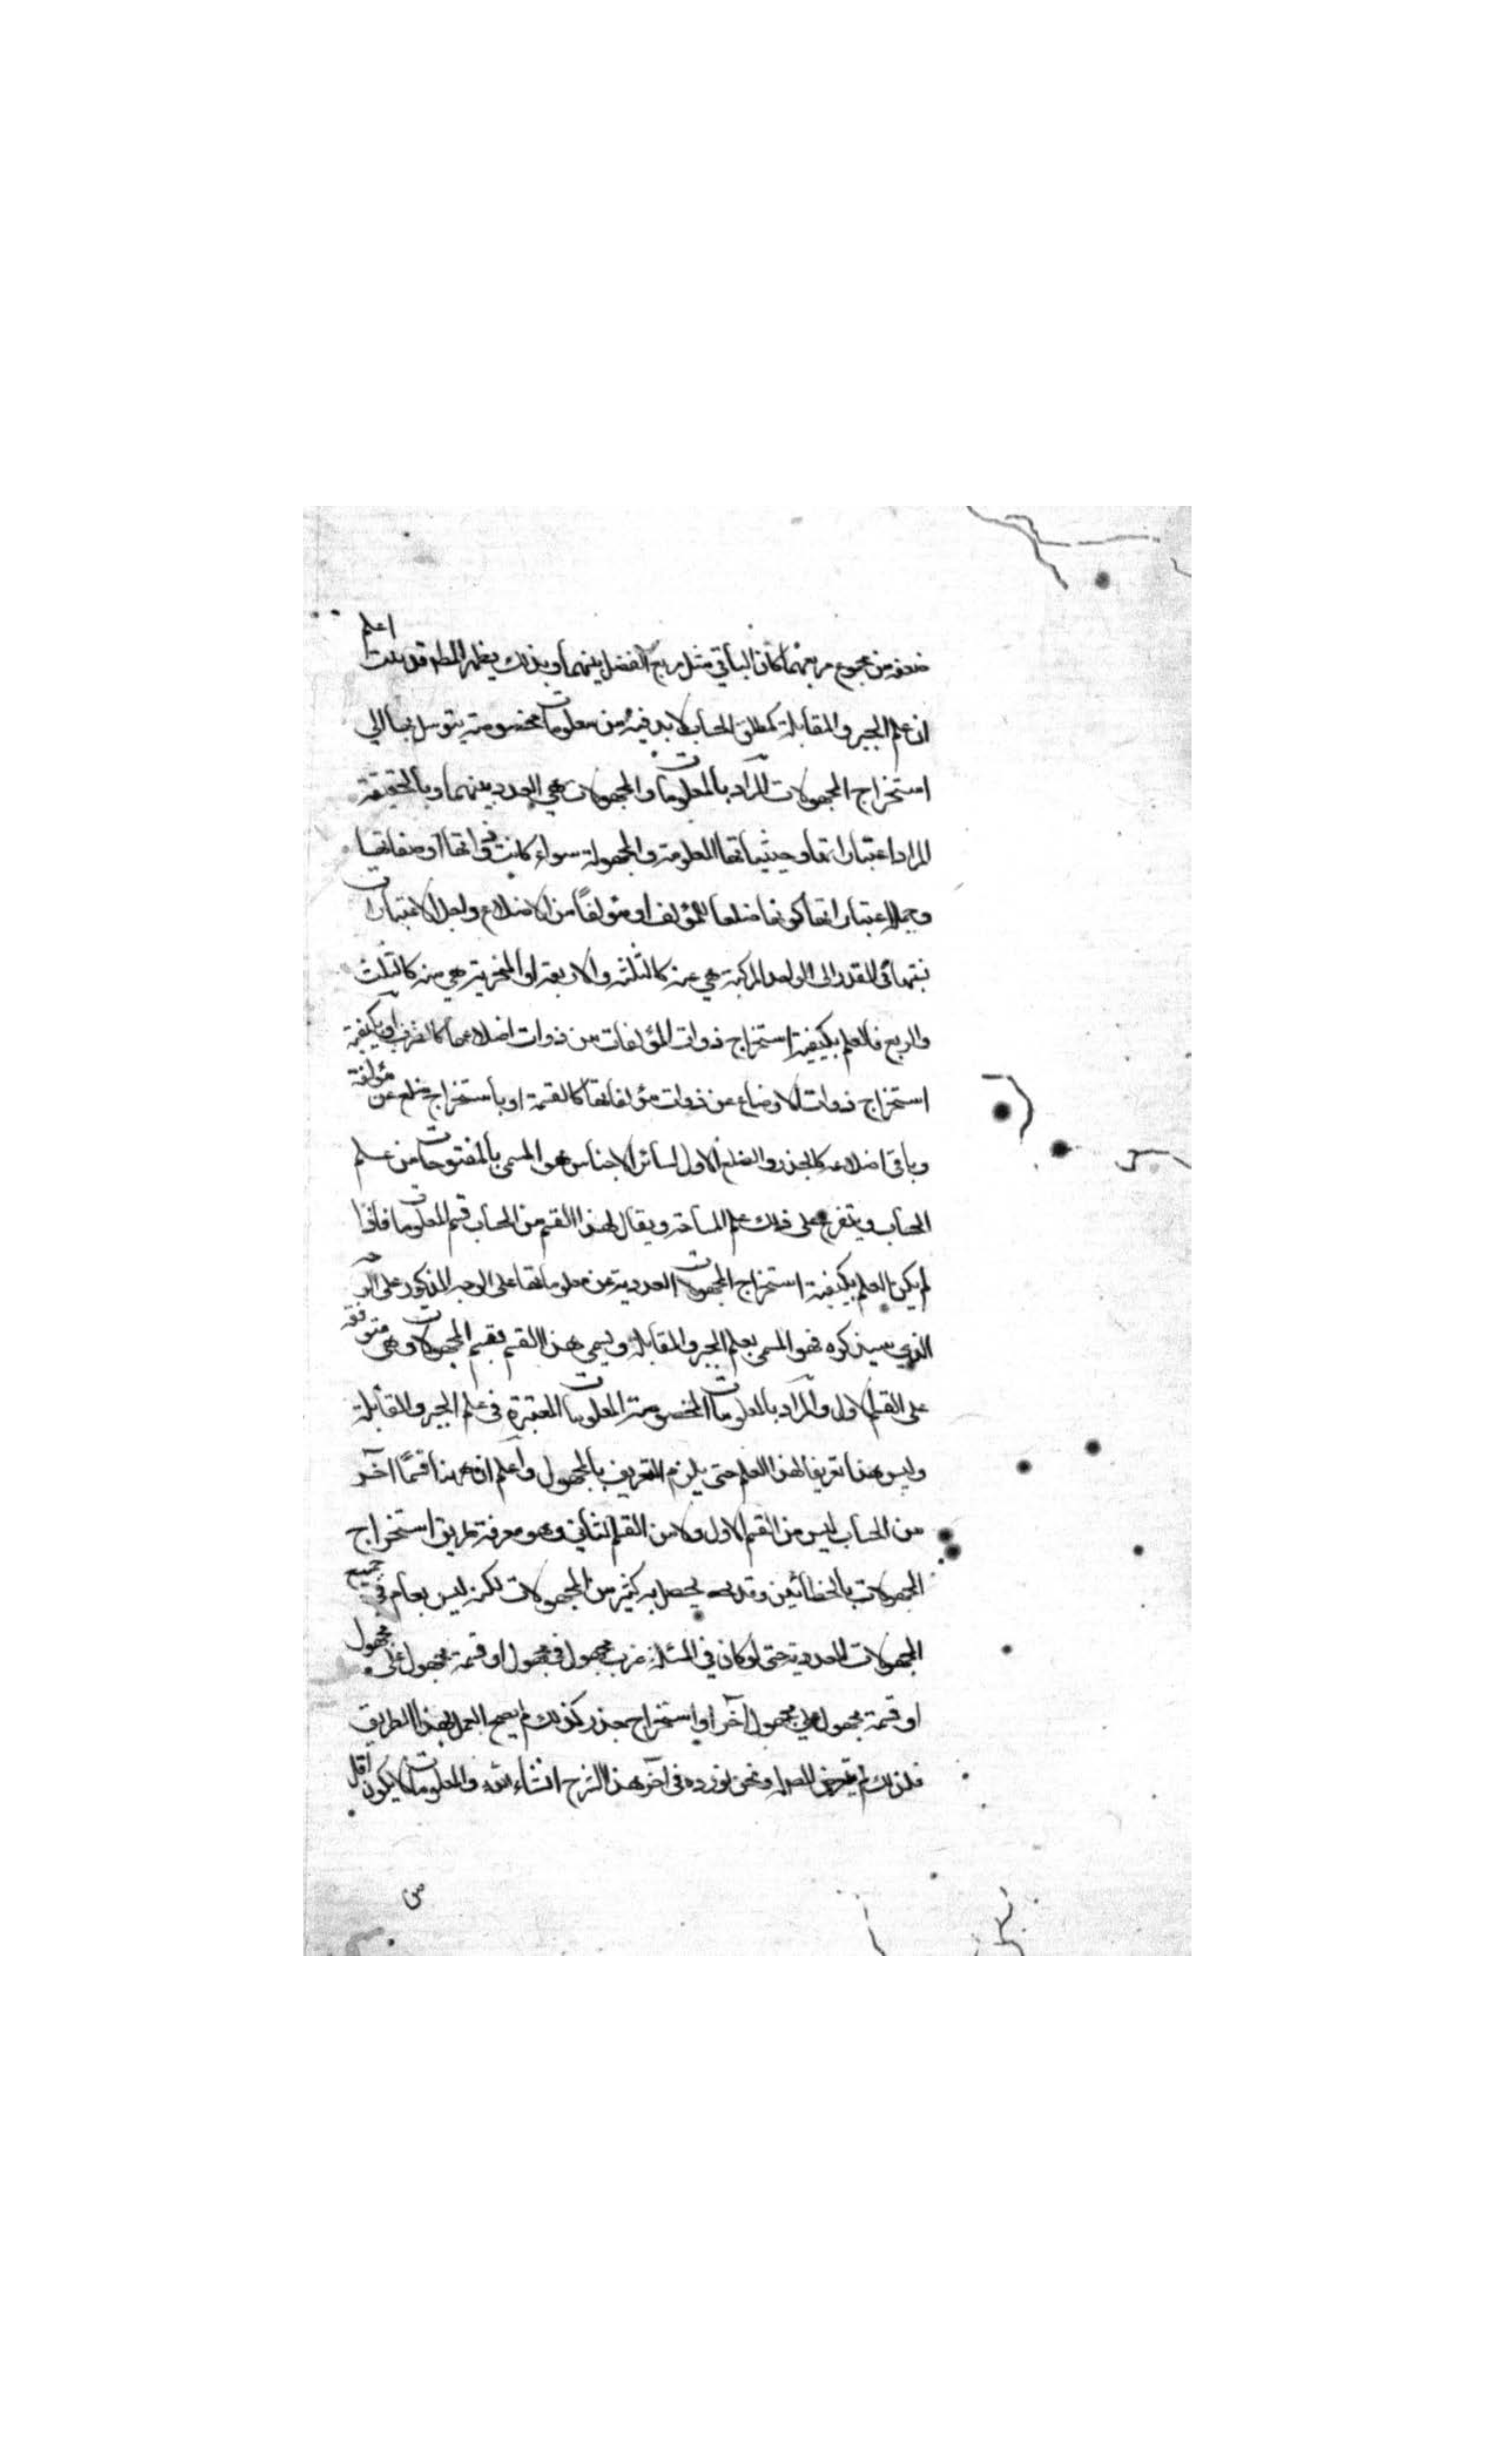 ضعفه من مجموع مربعيهما كان الباقي مثل مربع الفضل بينهما وبذلك يظهر المط اعلم
ان علم الجبر والمقابلة كمطلق الحساب لا بد فيه من معلومات مخصوصة يتوسل بها الي
استخراج المجهولات المراد بالمعلومات والمجهولات هي العدد بينهما وبالحقيقة
المراد اعتباراتها وحيثياتها المعلومة والمجهولة سواء كانت ذواتها او صفاتها
وجملة اعتباراتها كونها ضلعا للمؤلف او مؤلفا من الاضلاع ولعل الاعتبارات
الى الواحد المركبة هي عنه كالثلثة والاربعة او المجزية هي منه كالثلث
والربع فالعلم بكيفية استخراج ذوات المؤلفات من ذوات اضلاعها كالضرب او بكيفية
استخراج ذوات الاوضاع عن ذوات مؤلفاتها كالقسمة او باستخراج ضلع عن مؤلفة
وباقي اضلاعه كالجذر والضلع الاول لسائر الاجناس هو المسمى بالمفتوحات من علم
الحساب ويتفرع على ذلك علم المساحة ويقال لهذا القسم من الحساب قسم المعلومات فاذا
لم يكن العلم بكيفية استخراج المجهولات العددية عن معلوماتها على الوجه المذكور على الوجه
الذي سيذكره فهو المسمى بعلم الجبر والمقابلة ويسمى هذا القسم بقسم المجهولات وهي متوقفة
على القسم الاول والمراد بالمعلومات المخصوصة المعلومات المعتبرة في علم الجبر والمقابلة
وليس هذا تعريفا لهذا العلم حتى يلزم التعريف بالمجهول واعلم ان ههنا قسمًا آخر
من الحساب ليس من القسم الاول ولا من القسم الثاني وهو معرفة طريق استخراج
المجهولات بالخطائين وقد يحصل به كثير من المجهولات لكنه ليس بعام في جميع
المجهولات العددية حتى لو كان في المسئلة ضرب مجهول في مجهول او قسمة مجهول على مجهول
او قسمة مجهول على مجهول آخر او استخراج جذر كذلك لم يصح العمل بهذا الطريق
فلذلك لم يتعرض المص له ونحن نورده في آخر هذا الشرح انشاء الله والمعلومات لا يكون اقل
من